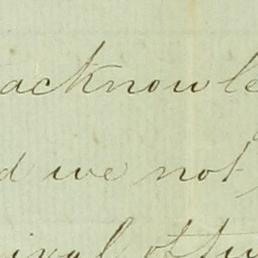 acknowle
d we not
ival of